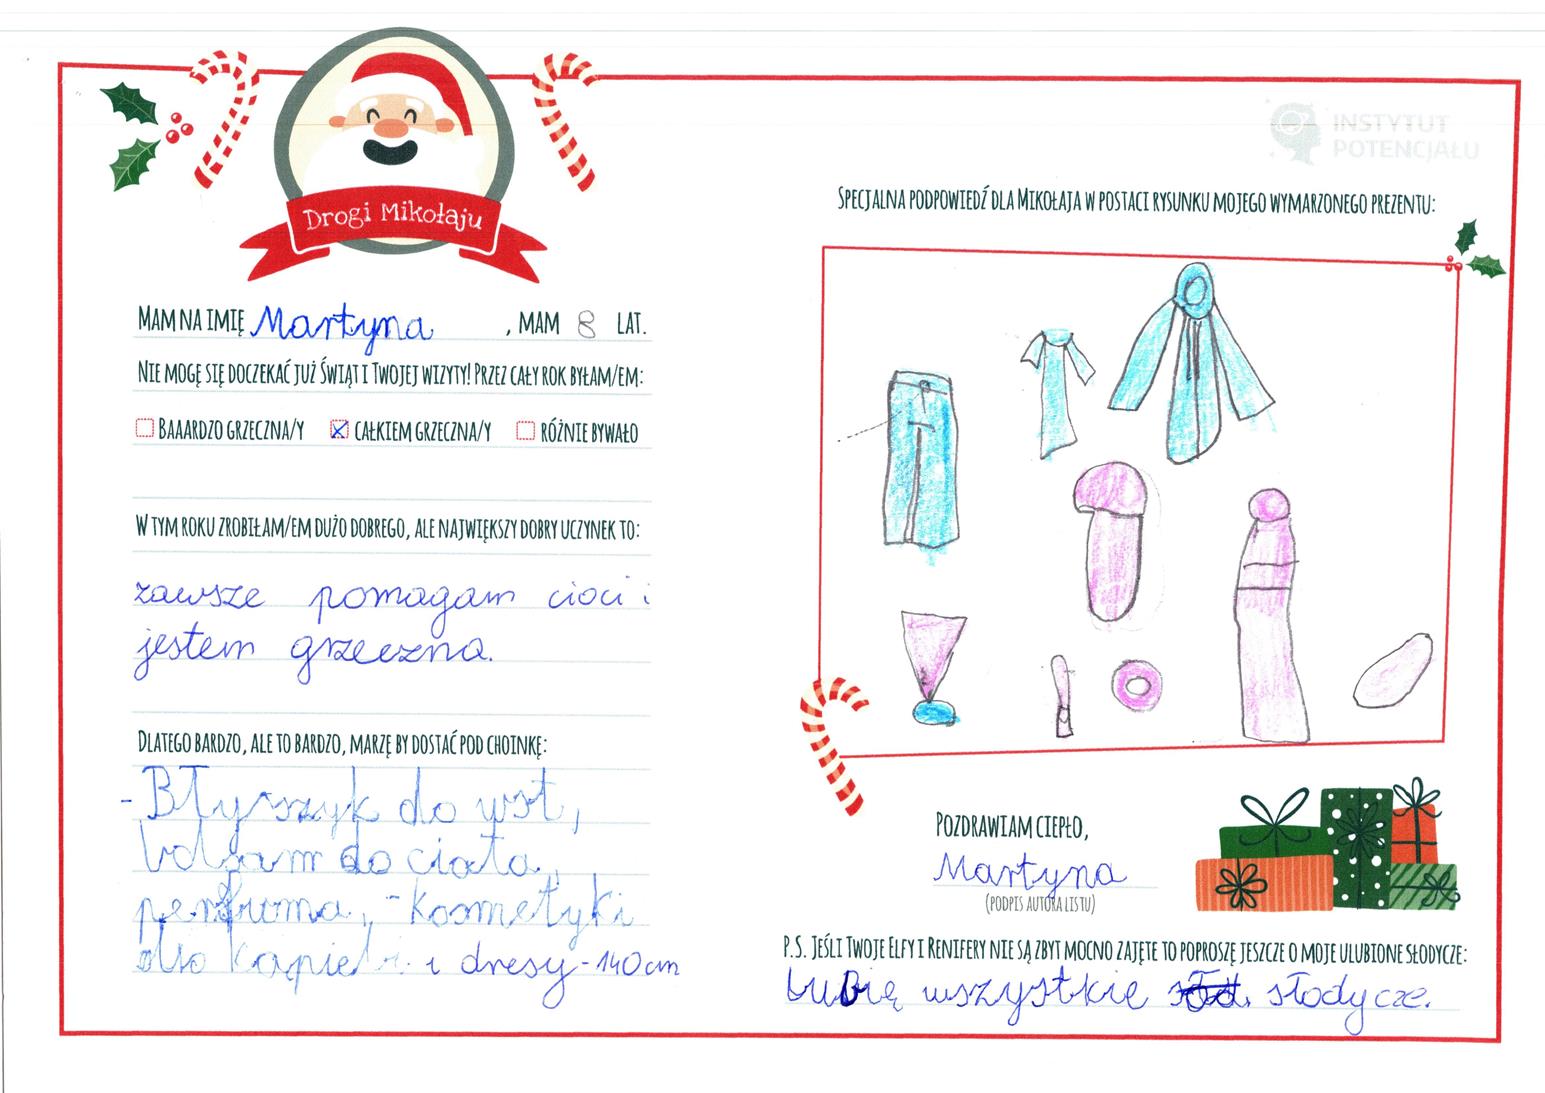 Drogi Mikołaju
MAM NA IMIĘ Martyna, MAM 8 LAT.
NIE MOGĘ SIĘ DOCZEKAĆ JUŻ ŚWIĄT I TWOJEJ WIZYTY! PRZEZ CAŁY ROK BYŁAM/EM:
BAAARDZO GRZECZNA/Y CAŁKIEM GRZECZNA/Y RÓŻNIE BYWAŁO
W TYM ROKU ZROBIŁAM/EM DUŻO DOBREGO, ALE NAJWIĘKSZY DOBRY UCZYNEK TO:
zawsze pomagam cioci i
jestem grzeczna.
DLATEGO BARDZO, ALE TO BARDZO, MARZĘ BY DOSTAĆ POD CHOINKĘ:
- Błyszyk do ust,
do ciała,
perfuma, - kosmetyki
do kąpieli i dresy - 140 cm
INSTYTUT
POTENCJAŁU
SPECJALNA PODPOWIEDŹ DLA MIKOŁAJA W POSTACI RYSUNKU MOJEGO WYMARZONEGO PREZENTU:
POZDRAWIAM CIEPŁO,
Martyna
(PODPIS AUTORA LISTU)
P.S. JEŚLI TWOJE ELFY I RENIFERY NIE SĄ ZBYT MOCNO ZAJĘTE TO POPROSZĘ JESZCZE O MOJE ULUBIONE SŁODYCZE:
Lubię wszystkie słodycze.